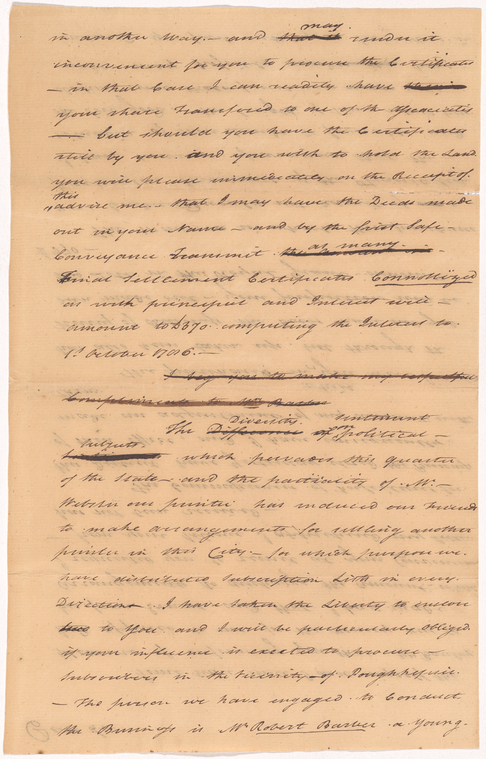 in another way. – and may render it
inconvenient for you to procure the Certificates
– in that Case I can readily have
your share Transfered to one of the Associates
– but should you have the Certificates
still by you. and you wish to hold the Land
you will please immediately on the Receipt of
this advise me – that I may have the Deeds made
out in your Name – and by the first Safe
Conveyance Transmit as many
Final Settlement Certificates Connsolized
as with principal and Interest will –
amount to £370. computing the Interest to
1st October 1786. –
I beg you to make my respectful
Compliments to Mrs Barber
The Diversity of sentiment on political –
subjects which pervades this quarter
of the State – and the partiality of Mr –
Webster our printer has induced our Friends
to make arrangements for setling another
printer in this City – for which purpose we
have distributed Subscription Lists in every
Direction I have taken the Liberty to enclose
to You and I will be particularly obliged
if your influence is exerted to procure –
Subscribers in the Vicinity of Poughkepsie –
– The person we have engaged to Conduct
the Business is Mr Robert Barber a Young